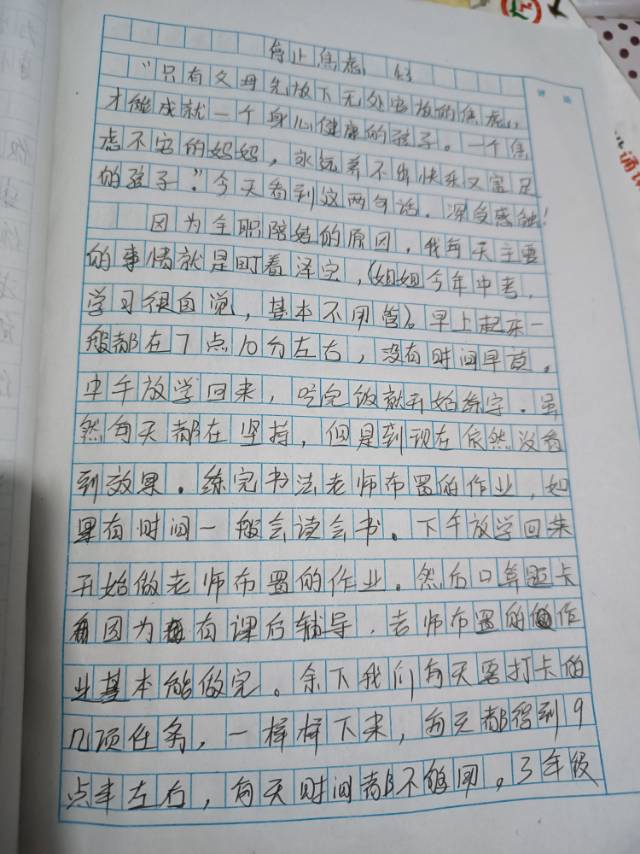 停止焦虑 43
"只有父母先放下无处安放的焦虑,
才能成就一个身心健康的孩子。一个焦
虑不安的妈妈,永远养不出快乐又富足
的孩子"。今天看到这两句话,深受感触!
因为全职陪读的原因,我每天主要
的事情就是盯着泽宝,(姐姐今年中考,
学习很自觉,基本不用管)。早上起来一
般都在7点10分左右,没有时间早读。
中午放学回来,吃完饭就开始练字。虽
然每天都在坚持,但是到现在依然没看
到效果。练完书法老师布置的作业,如
果有时间一般会读会书。下午放学回来
开始做老师布置的作业。然后口算题卡
因为有课后辅导,老师布置的作
业基本能做完。余下我们每天要打卡的
几项任务,一样样下来,每天都得到9
点半左右,每天时间都不够用。3年级